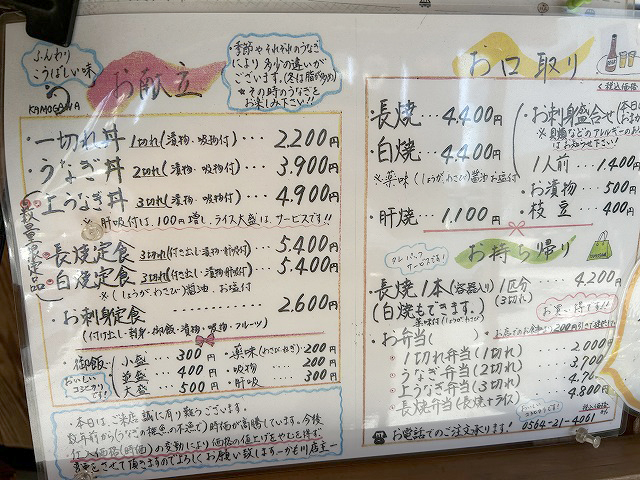 ふんわり
こうばしい味
KAMOGAWA
お献立
季節やそれぞれのうなぎ
により多少の違いが
ございます。(冬は脂が多め)
★その時のうなぎを
お楽しみ下さい!!
・一切れ丼 1切れ(漬物・吸物付) ‥‥ 2.200円
・うなぎ丼 2切れ(漬物・吸物付) ‥‥ 3.900円
・上うなぎ丼 3切れ(漬物・吸物付) ‥‥ 4.900円
※肝吸付は、100円増し、ライス大盛は、サービスです!!
(数量限定品)
・長焼定食 3切れ(付き出し・漬物・肝吸付) ‥‥ 5.400円
・白焼定食 3切れ(付き出し・漬物・肝吸付) ‥‥ 5.400円
※(しょうが、わさび)醤油、お塩付
・お刺身定食 ‥‥‥‥ 2.600円
(付け出し・刺身・御飯・漬物・吸物・フルーツ)
・御飯
おいしい
コシヒカリ
です!
小盛 300円
並盛 400円
大盛 500円
・薬味(わさび・ねぎ)・200円
・吸物 200円
・肝吸 300円
・本日は、ご来店誠に有り難うございます。
数年前から(うなぎの稚魚の不漁で)時価が高騰しています。今後
仕入価格(時価)の変動により価格の値上げをやむを得ず、
変更をさせて頂きますのでよろしくお願い致します…かも川店主…
お口取り
<税込価格
長焼‥‥4.400円
白焼‥‥4.400円
※薬味(しょうが、わさび)醤油、お塩付
・肝焼‥‥1.100円
・お刺身盛合せ
※貝類などのアレルギーのお
はお知らせ下さい!
1人前‥‥1.400円
・お漬物‥‥500円
・枝豆‥‥400円
お持ち帰り
・長焼1本(容器入り)1匹分‥‥4.200円
(白焼もできます。) (3切れ)
薬味付(しょうが、わさび)
お買い得です!!
・お弁当
・1切れ弁当(1切れ)‥‥2.000円
・うなぎ弁当(2切れ)‥‥3.700
・上うなぎ弁当(3切れ)
・長焼弁当(長焼+ライス)‥‥4.800円
お電話でのご注文承ります! 0564-21-4061